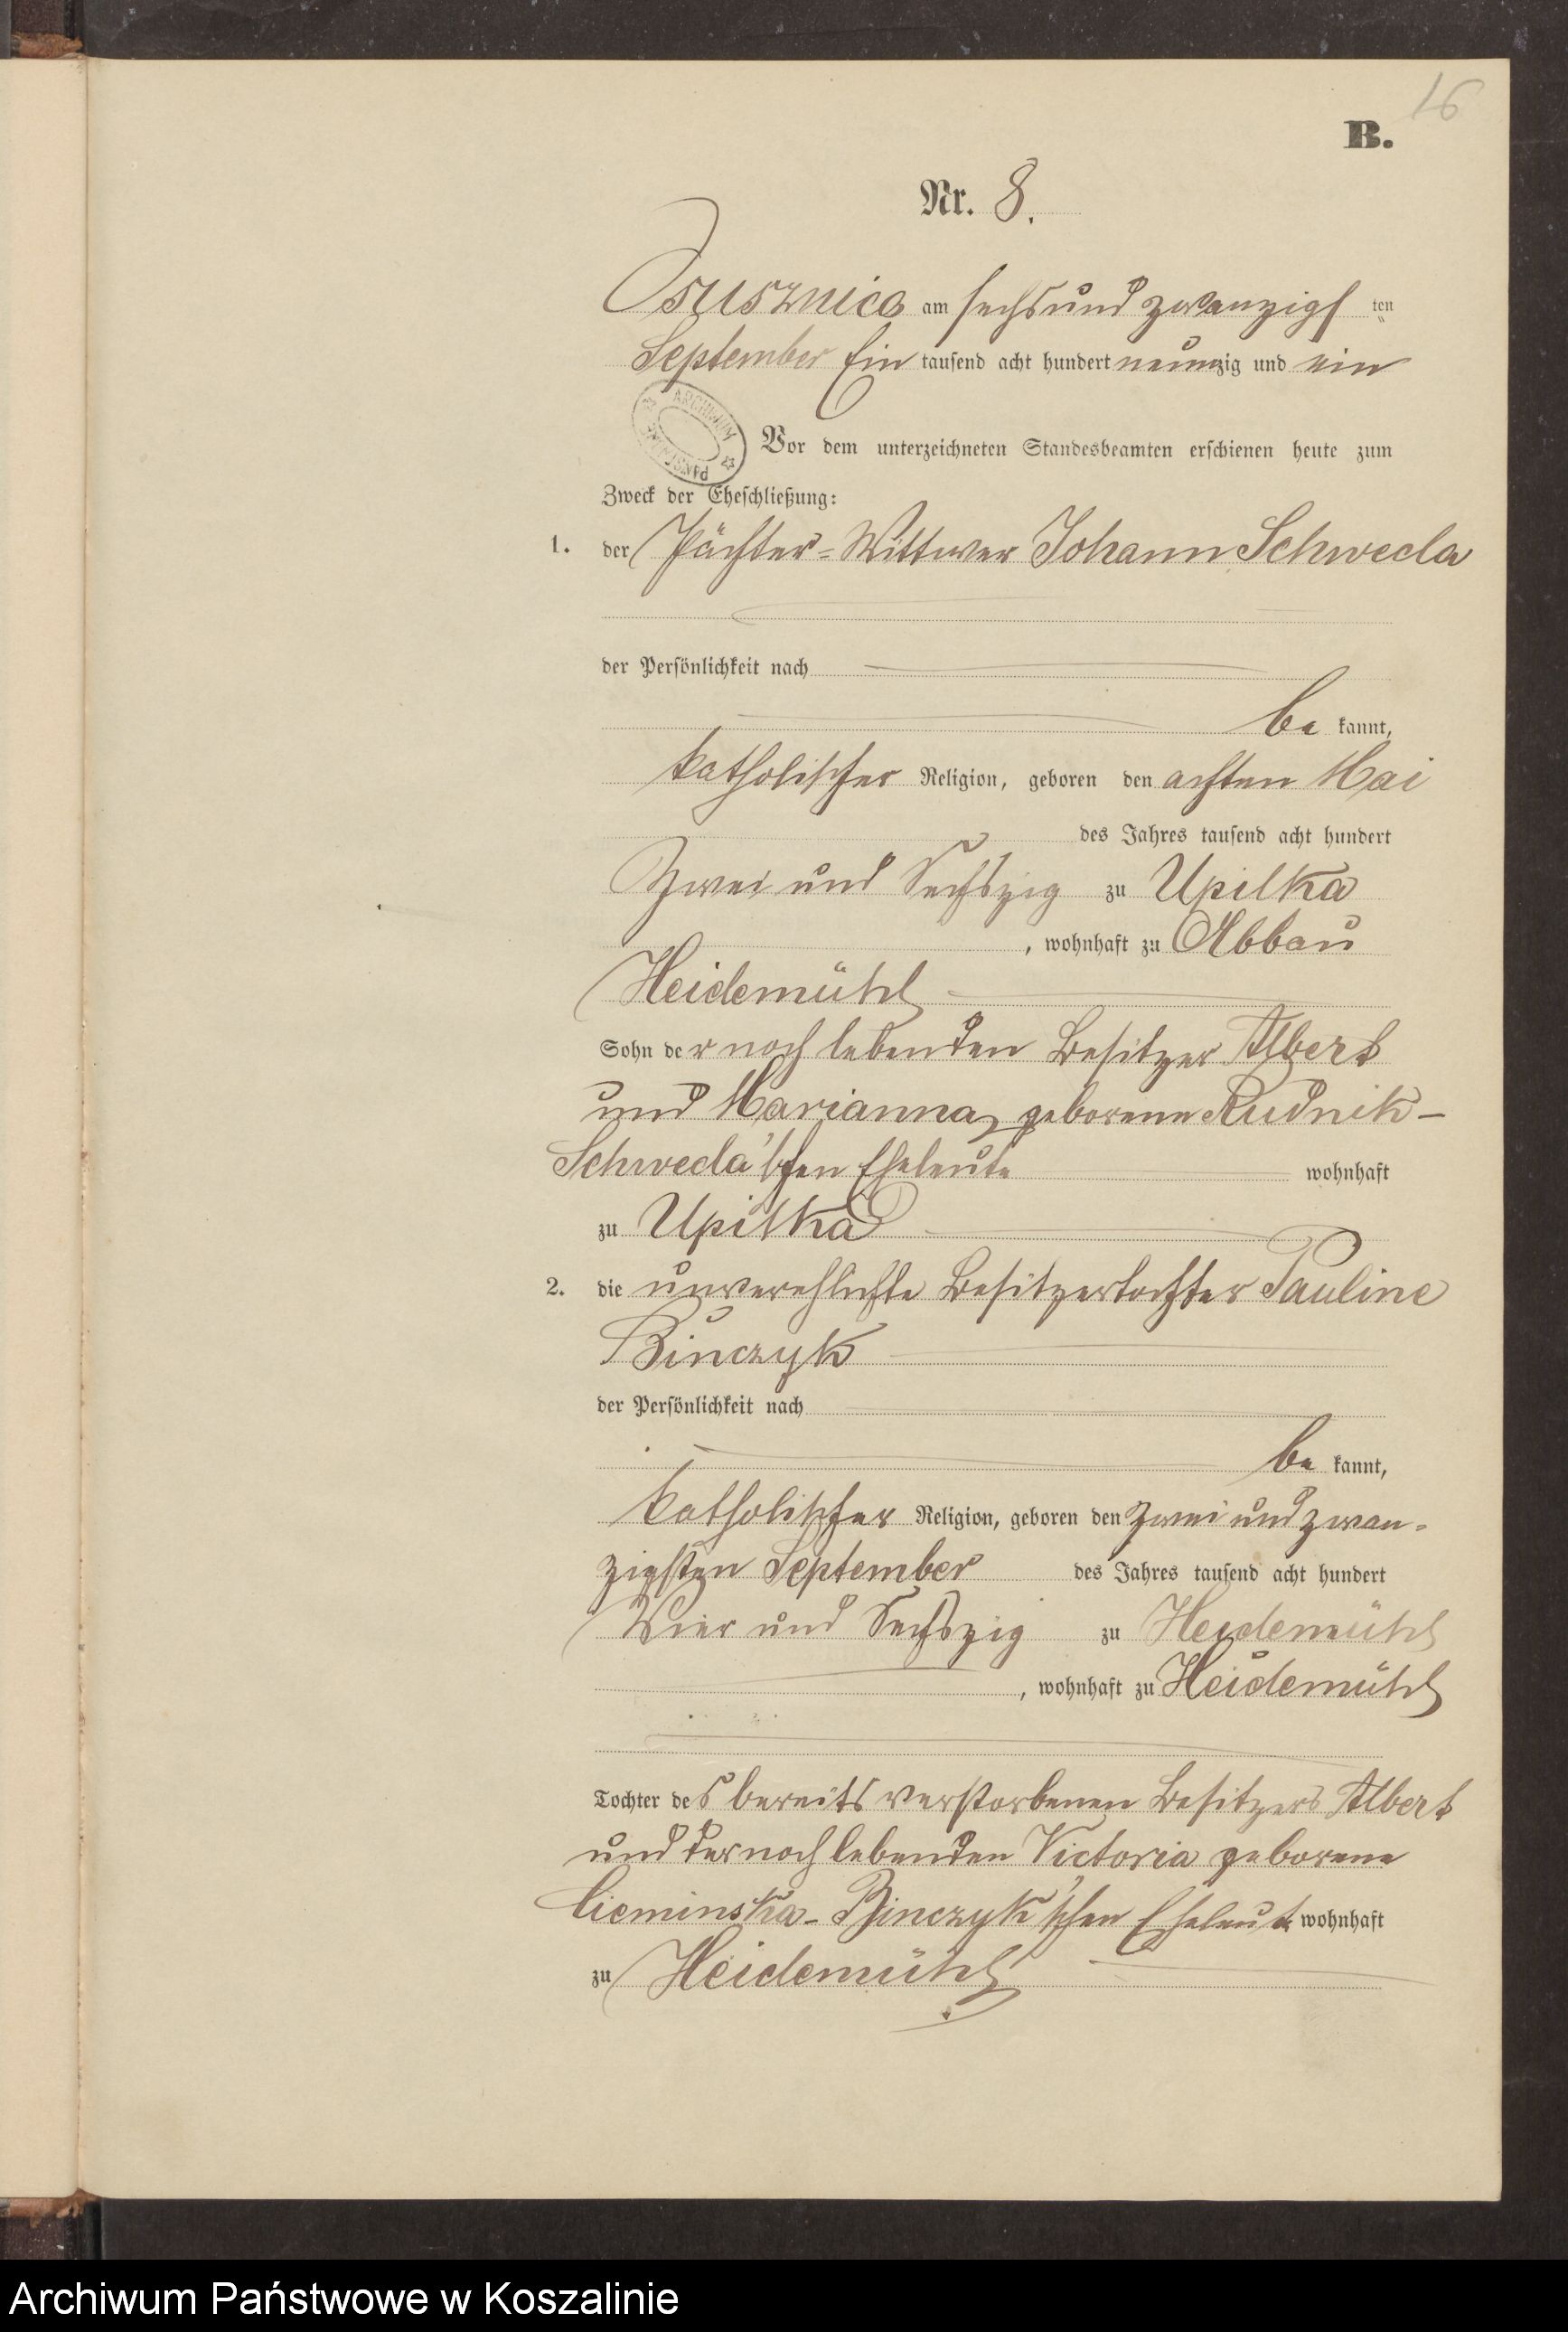 16
B.
Nr. 8.
Osusznica am sechsund zwanzigsten
September Ein tausend acht hundert neunzig und ein
ARCHIWUM PAŃSTWOWE
Vor dem unterzeichneten Standesbeamten erschienen heute zum
Zweck der Eheschließung:
1. der Pächter-Wittwer Johann Schweda
der Persönlichkeit nach
be kannt,
katholischer Religion, geboren den achten Mai
des Jahres tausend acht hundert
Zwei und Sechszig zu Upilka
, wohnhaft zu Abbau
Heidemühl
Sohn der noch lebenden Besitzer Albert
und Marianna, geborene Rudnik-
Schweda'schen Eheleute wohnhaft
zu Upilka
2. die unverehlichte Besitzertochter Pauline
Binczyk
der Persönlichkeit nach
be kannt,
katholischer Religion, geboren den Zwei und zwan-
zigsten September des Jahres tausend acht hundert
Vier und Sechszig zu Heidemühl
, wohnhaft zu Heidemühl
Tochter des bereits verstorbenen Besitzers Albert
und der noch lebenden Victoria geborene
Cieminska-Binczyk'schen Eheleute wohnhaft
zu Heidemühl
Archiwum Państwowe w Koszalinie